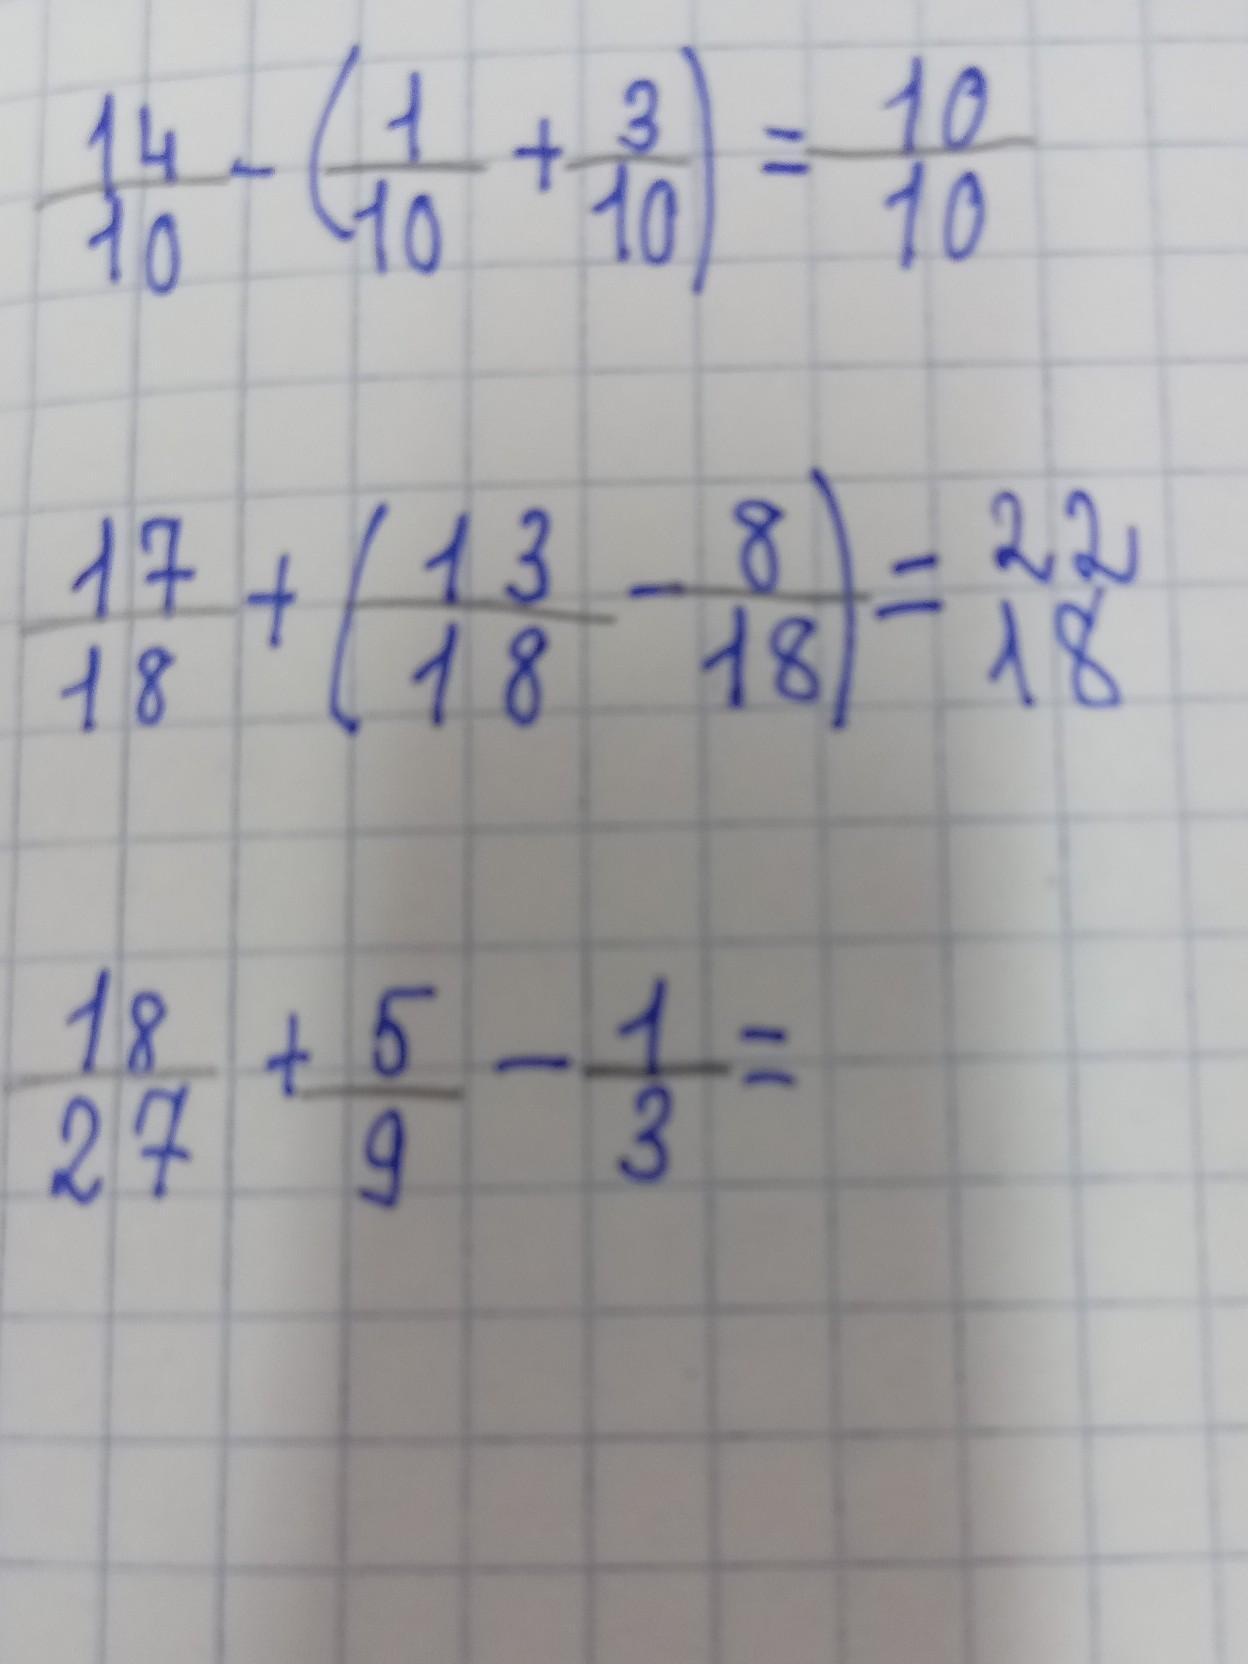 14/10 - (1/10 + 3/10) = 10/10
17/18 + (13/18 - 8/18) = 22/18
18/27 + 5/9 - 1/3 =